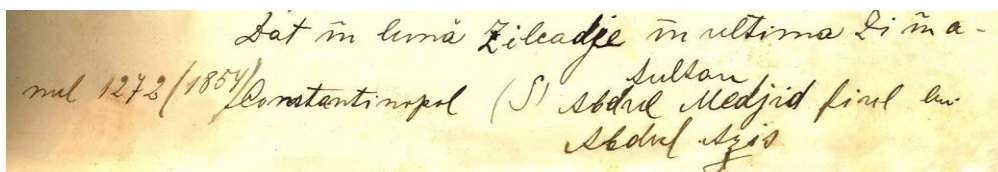 Dat în lună Zilcadje în ultima Zi în a-
nul 1272 (1854) Constantinopol (S) Sultan
Abdul Medjid fiul lui
Abdul Azis